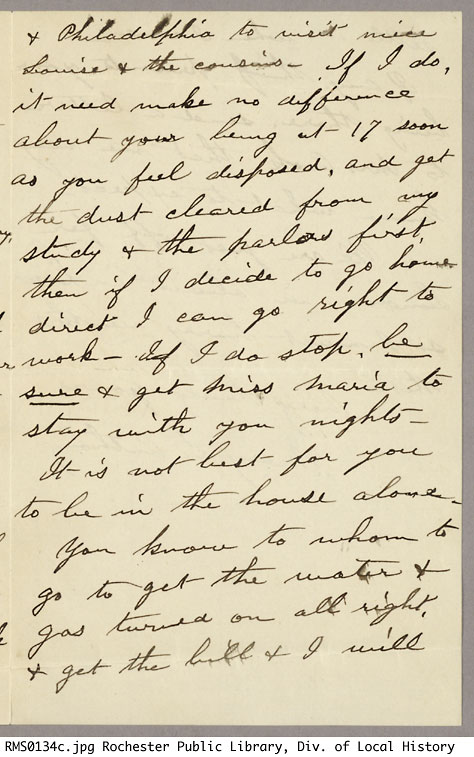 & Philadelphia to visit niece
Louise & the cousins - If I do,
it need make no difference
about your being at 17 soon
as you feel disposed, and get
the dust cleared from my
study & the parlors first,
then if I decide to go home
direct I can go right to
work - If I do stop, be
sure & get Miss Maria to
stay with you nights -
It is not best for you
to be in the house alone -
You know to whom to
go to get the water &
gas turned on all right,
& get the bill & I will
RMS0134c.jpg Rochester Public Library, Div. of Local History